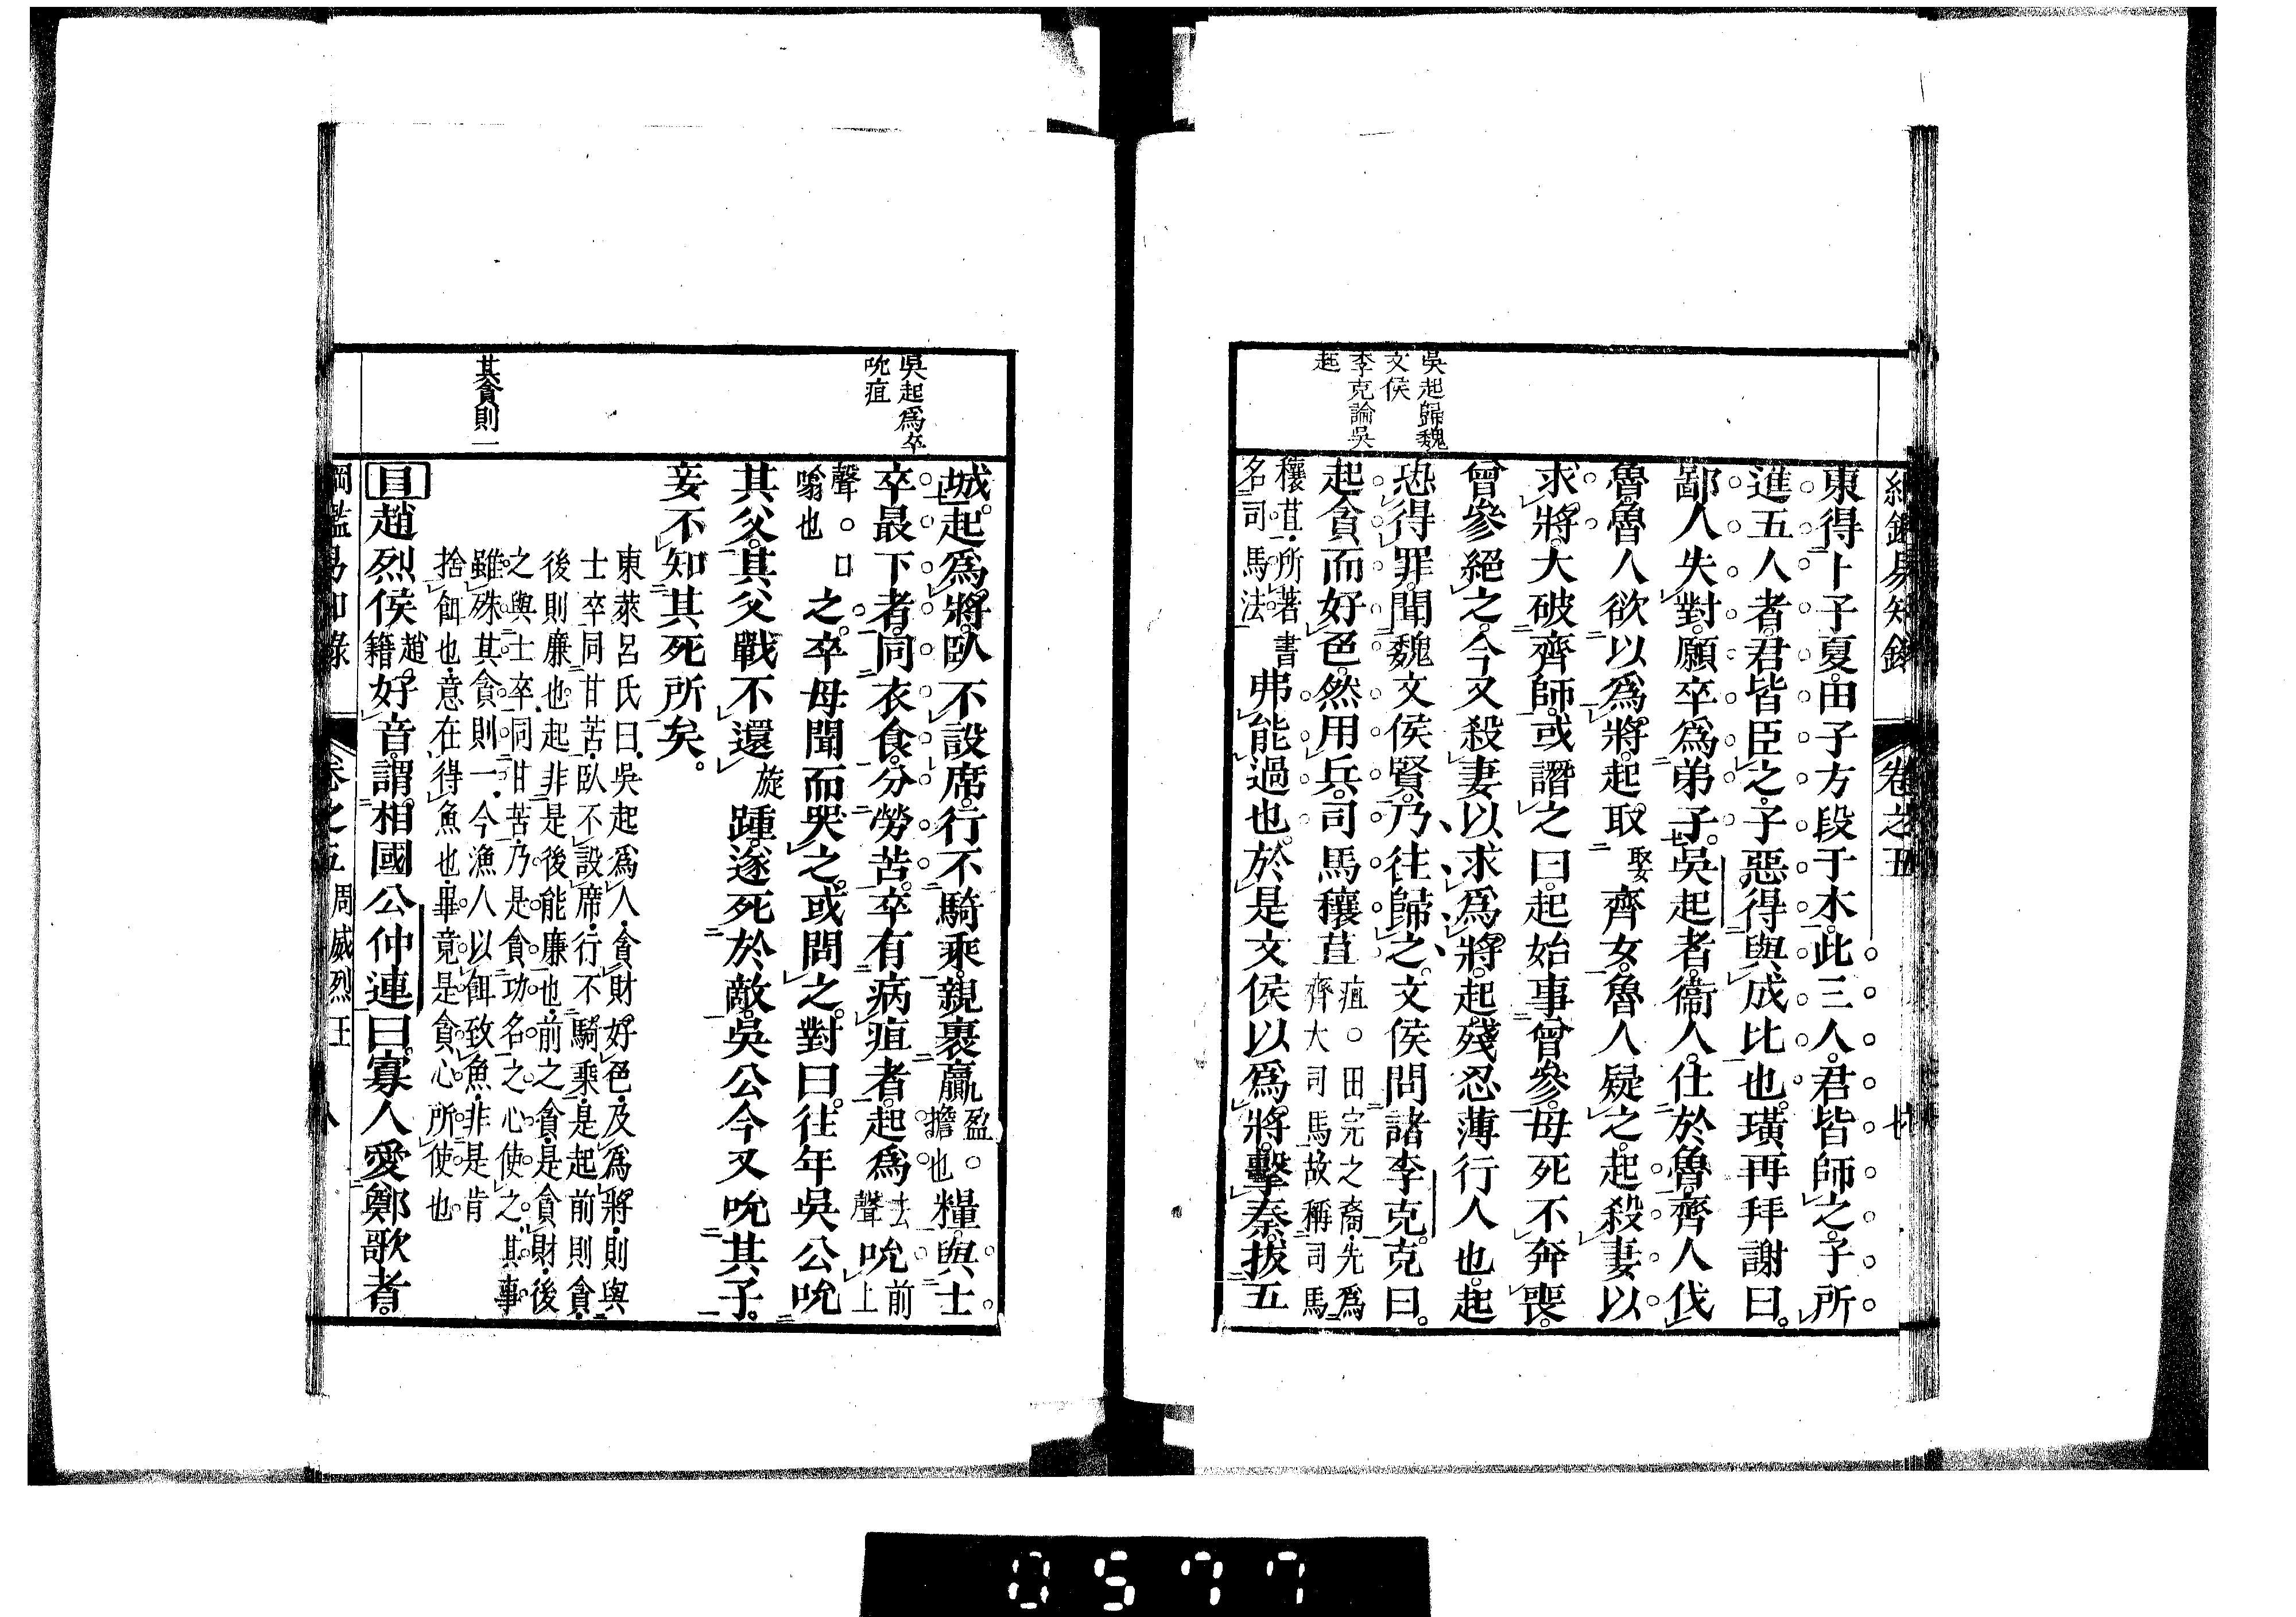 綱鑑易知錄 卷之五 七
吳起歸魏
文侯
李克論吳
起
東得卜子夏田子方段于木此三人君皆師之子所
進五人者君皆臣之子惡得與成比也璜再拜謝曰
鄙人失對願卒爲弟子吳起者衞人仕於魯齊人伐
魯魯人欲以爲將起取娶齊女魯人疑之起殺妻以
求將大破齊師或譖之曰起始事曾參母死不奔喪
曾參絕之今又殺妻以求爲將起殘忍薄行人也起
恐得罪聞魏文侯賢乃往歸之文侯問諸李克克曰
起貪而好色然用兵司馬穰苴疽○田完之裔先爲齊大司馬故稱司馬
穰苴所著書名司馬法弗能過也於是文侯以爲將擊秦拔五
吳起爲卒
吮疽
其貪則一
城起爲將臥不設席行不騎乘親裹贏盈○擔也糧與士
卒最下者同衣食分勞苦卒有病疽者起爲去聲吮前上
聲○口嗡也之卒母聞而哭之或問之對曰往年吳公吮
其父其父戰不還旋踵遂死於敵吳公今又吮其子
妾不知其死所矣
東萊呂氏曰吳起爲人貪財好色及爲將則與
士卒同甘苦臥不設席行不騎乘是起前則貪
後則廉也起非是後能廉也前之貪是貪財後
之與士卒同甘苦乃是貪功名之心使之其事
雖殊其貪則一今漁人以餌致魚非是肯
捨餌也意在得魚也畢竟是貪心所使也
目趙烈侯趙籍好音謂相國公仲連曰寡人愛鄭歌者
綱鑑易知錄 卷之五 周威烈王 八
0577